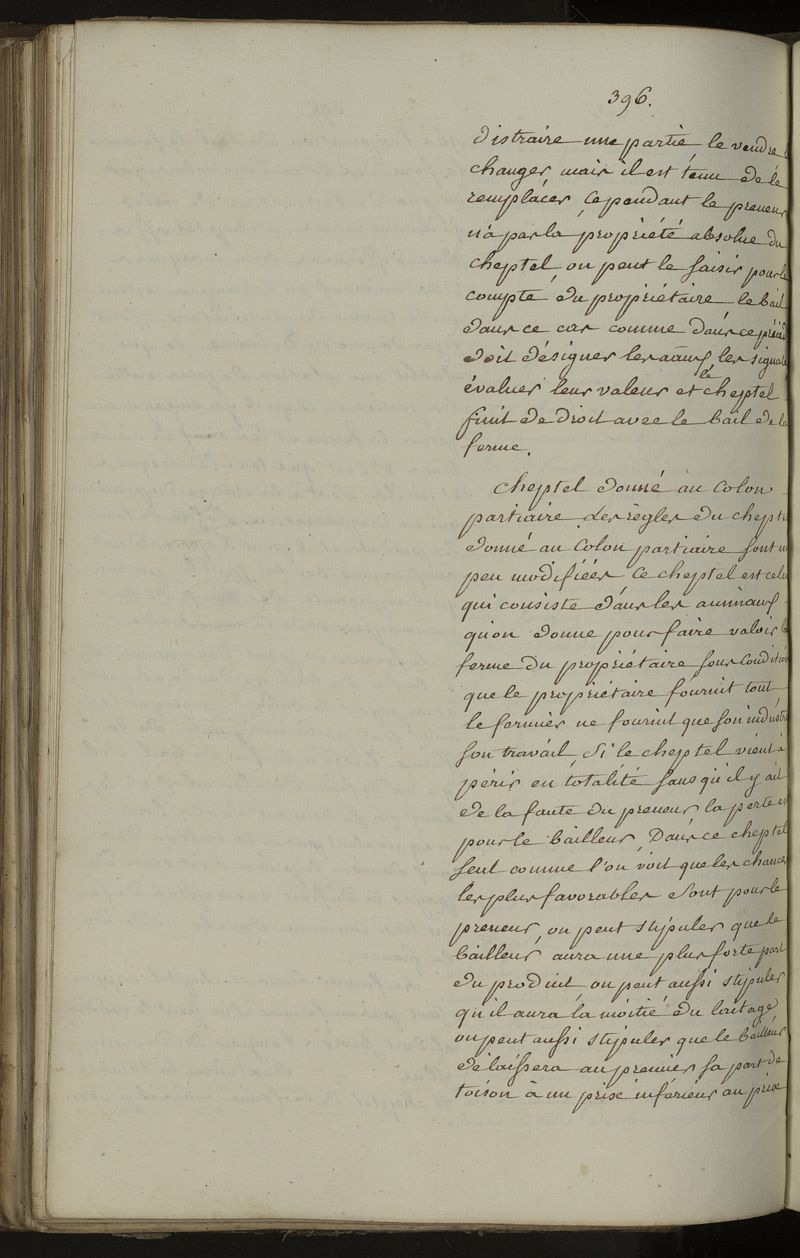 396.
distraire une partie le vendre
changer, mais il est tenu de le
remplacer, cependant le preneur
n'a pas la propriété absolue du
cheptel, on peut le saisir pour le
compte du propriétaire le bail
dans ce cas comme dans ce
doit désigner les les
évaluer leur valeur et le cheptel
finit de droit avec le bail de la
ferme.
Cheptel donné au Colon
partiaire. Les règles du
donné au Colon partiaire sont
peu modifiées ce cheptel est
qui consiste dans les
qu'on donne pour faire valoir la
ferme du propriétaire sous
que le propriétaire fournit tout
le fermier ne fournit que son
son travail, Si le cheptel vient à
périr en totalité sans qu'il y ait
de la faute du preneur la perte
pour le bailleur, Dans ce cheptel
seul comme l'on voit que les chances
les plus favorables sont pour le
preneur, on peut stipuler que le
bailleur aura une plus forte part
du produit, on peut aussi stipuler
qu'il aura la moitié du laitage
on peut aussi stipuler que le bailleur
délaissera au sa part de
toison à un prise inférieur au prise